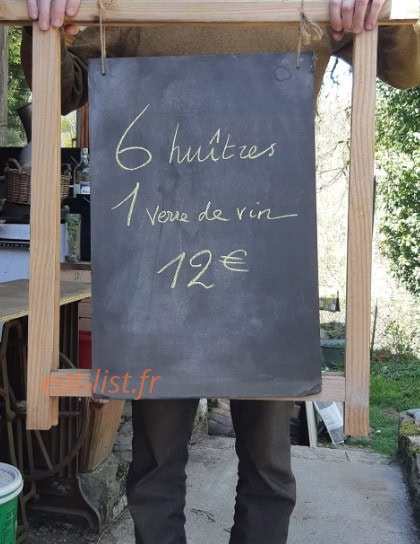 6 huîtres
1 verre de vin
12€
eat-list.fr